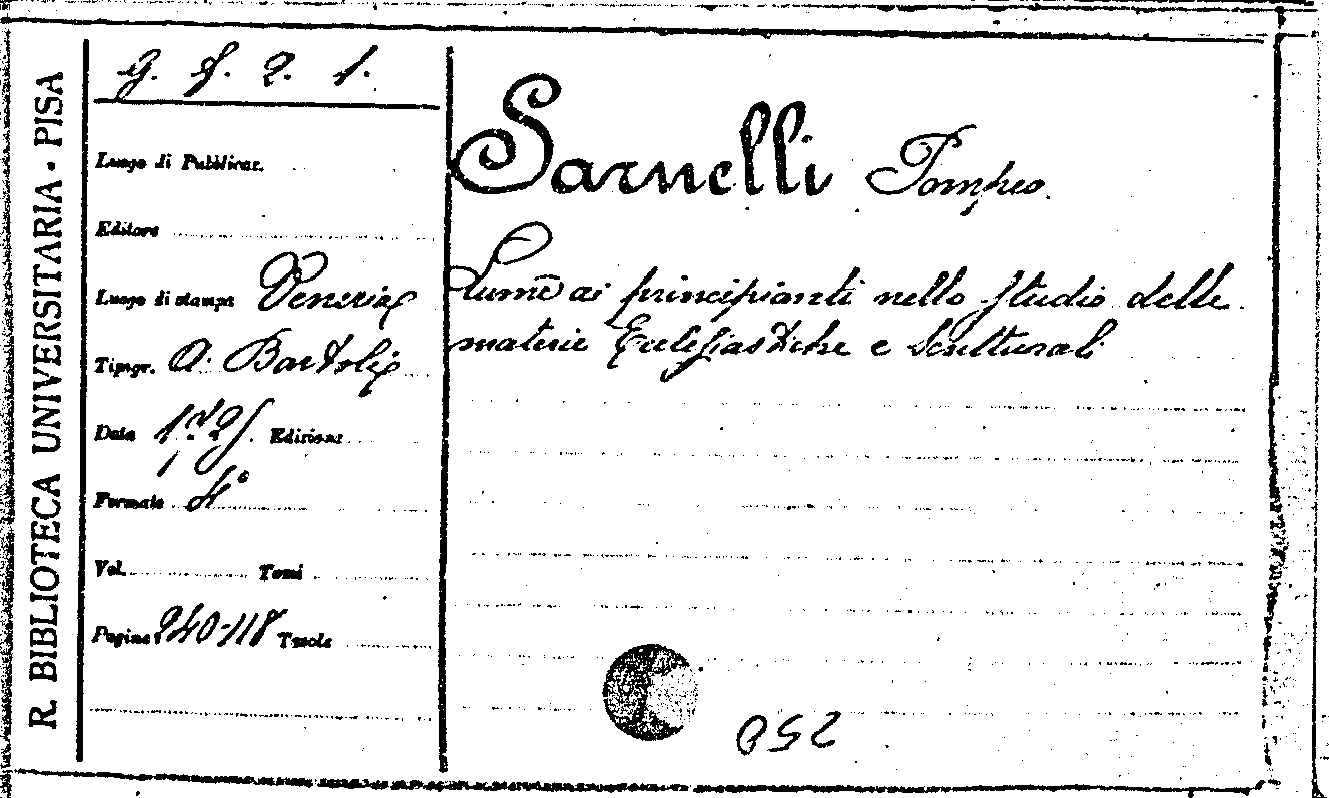 R. BIBLIOTECA UNIVERSITARIA - PISA
G. f. 2. 1.
Luogo di Pubblicaz.
Editore
Luogo di stampa Venezia
Tipogr. A. Bartoli
Data 172 Edizione
Formato 4°
Vol. Tomi
Pagine 240-118 Tavole
Sarnelli Pompeo.
Lume ai principianti nello studio delle
materie Ecclesiastiche e Scritturali
052